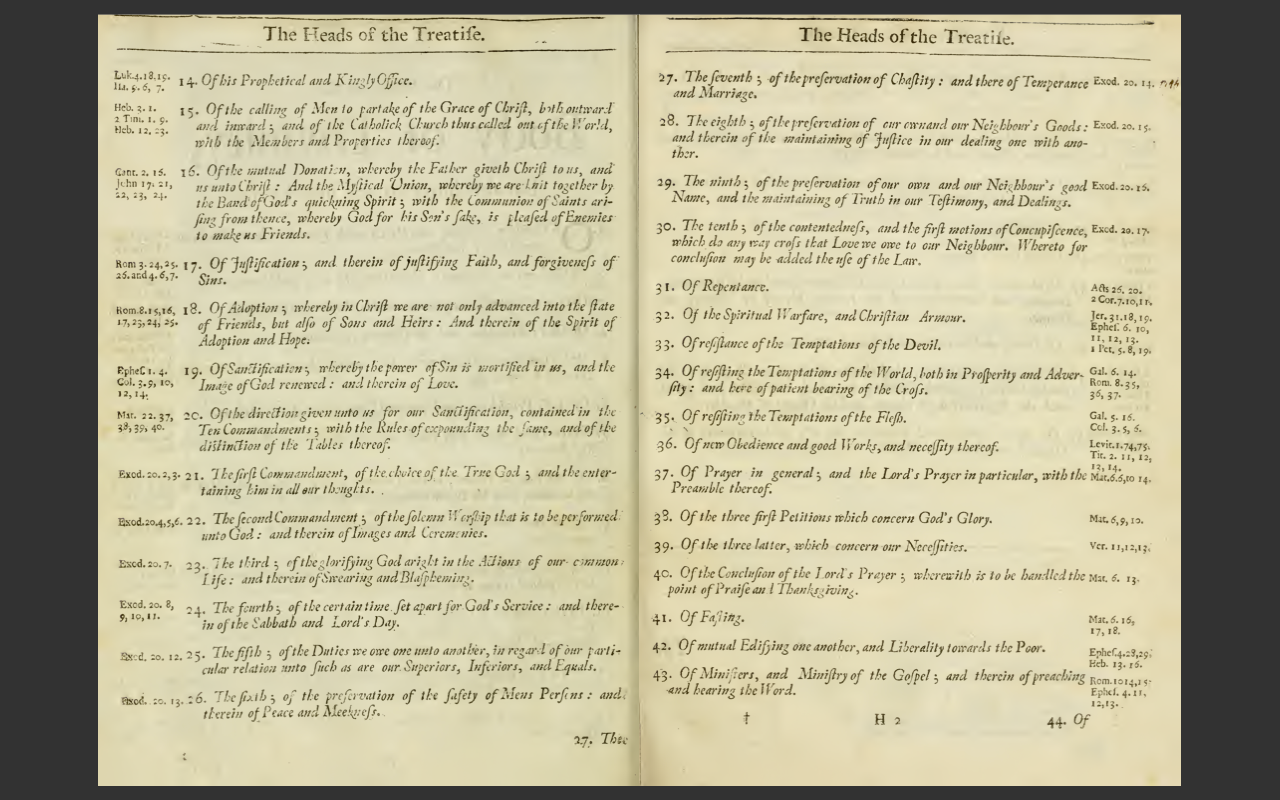 The Heads of the Treatiſe.
Luk.4.18,19.
Iſa. 9. 6, 7.
14. Of his Prophetical and Kingly Office.
Heb. 3. 1.
2 Tim. 1. 9.
Heb. 12, 23.
15. Of the calling of Men to partake of the Grace of Chriſt, both outward
and inward ; and of the Catholick Church thus called out of the World,
with the Members and Properties thereof.
Cant. 2. 16.
John 17. 21,
22, 23, 24.
16. Of the mutual Donation, whereby the Father giveth Chriſt to us, and
us unto Chriſt : And the Myſtical Union, whereby we are knit together by
the Band of God's quickning Spirit ; with the Communion of Saints ari-
ſing from thence, whereby God for his Son's ſake, is pleaſed of Enemies
to make us Friends.
Rom 3. 24, 25.
26. and 4. 6, 7.
17. Of Juſtification ; and therein of juſtifying Faith, and forgiveneſs of
Sins.
Rom.8.15,16,
17,23,24, 25.
18. Of Adoption ; whereby in Chriſt we are not only advanced into the ſtate
of Friends, but alſo of Sons and Heirs : And therein of the Spirit of
Adoption and Hope.
Epheſ. 1. 4.
Col. 3. 9, 10,
12, 14.
19. Of Sanctification ; whereby the power of Sin is mortified in us, and the
Image of God renewed : and therein of Love.
Mat. 22. 37,
38, 39, 40.
20. Of the direction given unto us for our Sanctification, contained in the
Ten Commandments ; with the Rules of expounding the ſame, and of the
diſtinction of the Tables thereof.
Exod. 20. 2,3.
21. The firſt Commandment, of the choice of the True God ; and the enter-
taining him in all our thoughts.
Exod.20.4,5,6.
22. The ſecond Commandment ; of the ſolemn Worſhip that is to be performed
unto God : and therein of Images and Ceremonies.
Exod. 20. 7.
23. The third ; of the glorifying God aright in the Actions of our common
Life : and therein of Swearing and Blaſpheming.
Exod. 20. 8,
9, 10, 11.
24. The fourth ; of the certain time ſet apart for God's Service : and there-
in of the Sabbath and Lord's Day.
Exod. 20. 12.
25. The fifth ; of the Duties we owe one unto another, in regard of our parti-
cular relation unto ſuch as are our Superiors, Inferiors, and Equals.
Exod. 20. 13.
26. The ſixth ; of the preſervation of the ſafety of Mens Perſons : and
therein of Peace and Meekneſs.
27. The
The Heads of the Treatiſe.
27. The ſeventh ; of the preſervation of Chaſtity : and there of Temperance
and Marriage.
Exod. 20. 14.
28. The eighth ; of the preſervation of our own and our Neighbour's Goods :
and therein of the maintaining of Juſtice in our dealing one with ano-
ther.
Exod. 20. 15.
29. The ninth ; of the preſervation of our own and our Neighbour's good
Name, and the maintaining of Truth in our Teſtimony, and Dealings.
Exod. 20. 16.
30. The tenth ; of the contentedneſs, and the firſt motions of Concupiſcence,
which do any way croſs that Love we owe to our Neighbour. Whereto for
concluſion may be added the uſe of the Law.
Exod. 20. 17.
31. Of Repentance.
Acts 26. 20.
2 Cor.7.10,11.
32. Of the Spiritual Warfare, and Chriſtian Armour.
Jer. 31.18, 19.
Epheſ. 6. 10,
11, 12, 13.
33. Of reſiſtance of the Temptations of the Devil.
1 Pet. 5. 8, 19.
34. Of reſiſting the Temptations of the World, both in Proſperity and Adver-
ſity : and here of patient bearing of the Croſs.
Gal. 6. 14.
Rom. 8. 35,
36, 37.
35. Of reſiſting the Temptations of the Fleſh.
Gal. 5. 16.
Col. 3. 5, 6.
36. Of new Obedience and good Works, and neceſſity thereof.
Levit.1.74,75.
Tit. 2. 11, 12,
12, 14.
37. Of Prayer in general ; and the Lord's Prayer in particular, with the
Preamble thereof.
Mat.6.6,10 14.
38. Of the three firſt Petitions which concern God's Glory.
Mat. 6, 9, 10.
39. Of the three latter, which concern our Neceſſities.
Ver. 11,12,13.
40. Of the Concluſion of the Lord's Prayer ; wherewith is to be handled the
point of Praiſe and Thankſgiving.
Mat. 6. 13.
41. Of Faſting.
Mat. 6. 16,
17, 18.
42. Of mutual Edifying one another, and Liberality towards the Poor.
Epheſ.4.28,29.
Heb. 13. 16.
43. Of Miniſters, and Miniſtry of the Goſpel ; and therein of preaching
and hearing the Word.
Rom.1014,15.
Epheſ. 4. 11,
12,13.
† H 2 44. Of